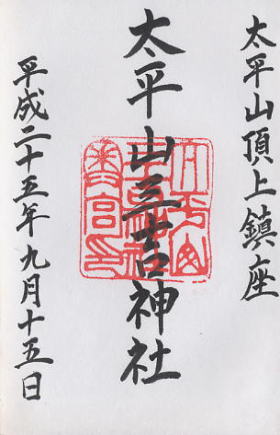 太平山頂上鎮座
太平山三吉神社
平成二十五年九月十五日